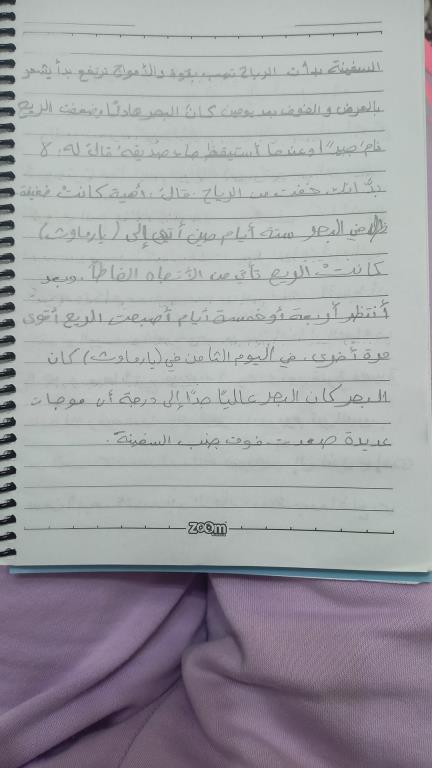 السفينة بدأت الرياح تهب بقوة والأمواج ترتفع بدأ يشعر
بالمرض والخوف بعد يومين كان البحر هادئًا وضعفت الريح
نام جيدًا وعندما أستيقظ جاء صديقه قال له: لا
بدَّ أنك خفت من الرياح. قال: كانت خفيفة
في البحر ستة أيام حين أتى إلى (يارماوث)
كانت الريح تأتي من الأتجاه الخاطئ. وبعد
أنتظر أربعة أو خمسة أيام أصبحت الريح أقوى
مرة أخرى. في اليوم الثامن في (يارماوث) كان
البحر كان البحر عاليًا جدًا إلى درجة أن موجات
عديدة صعدت فوق جنب السفينة.
zoom